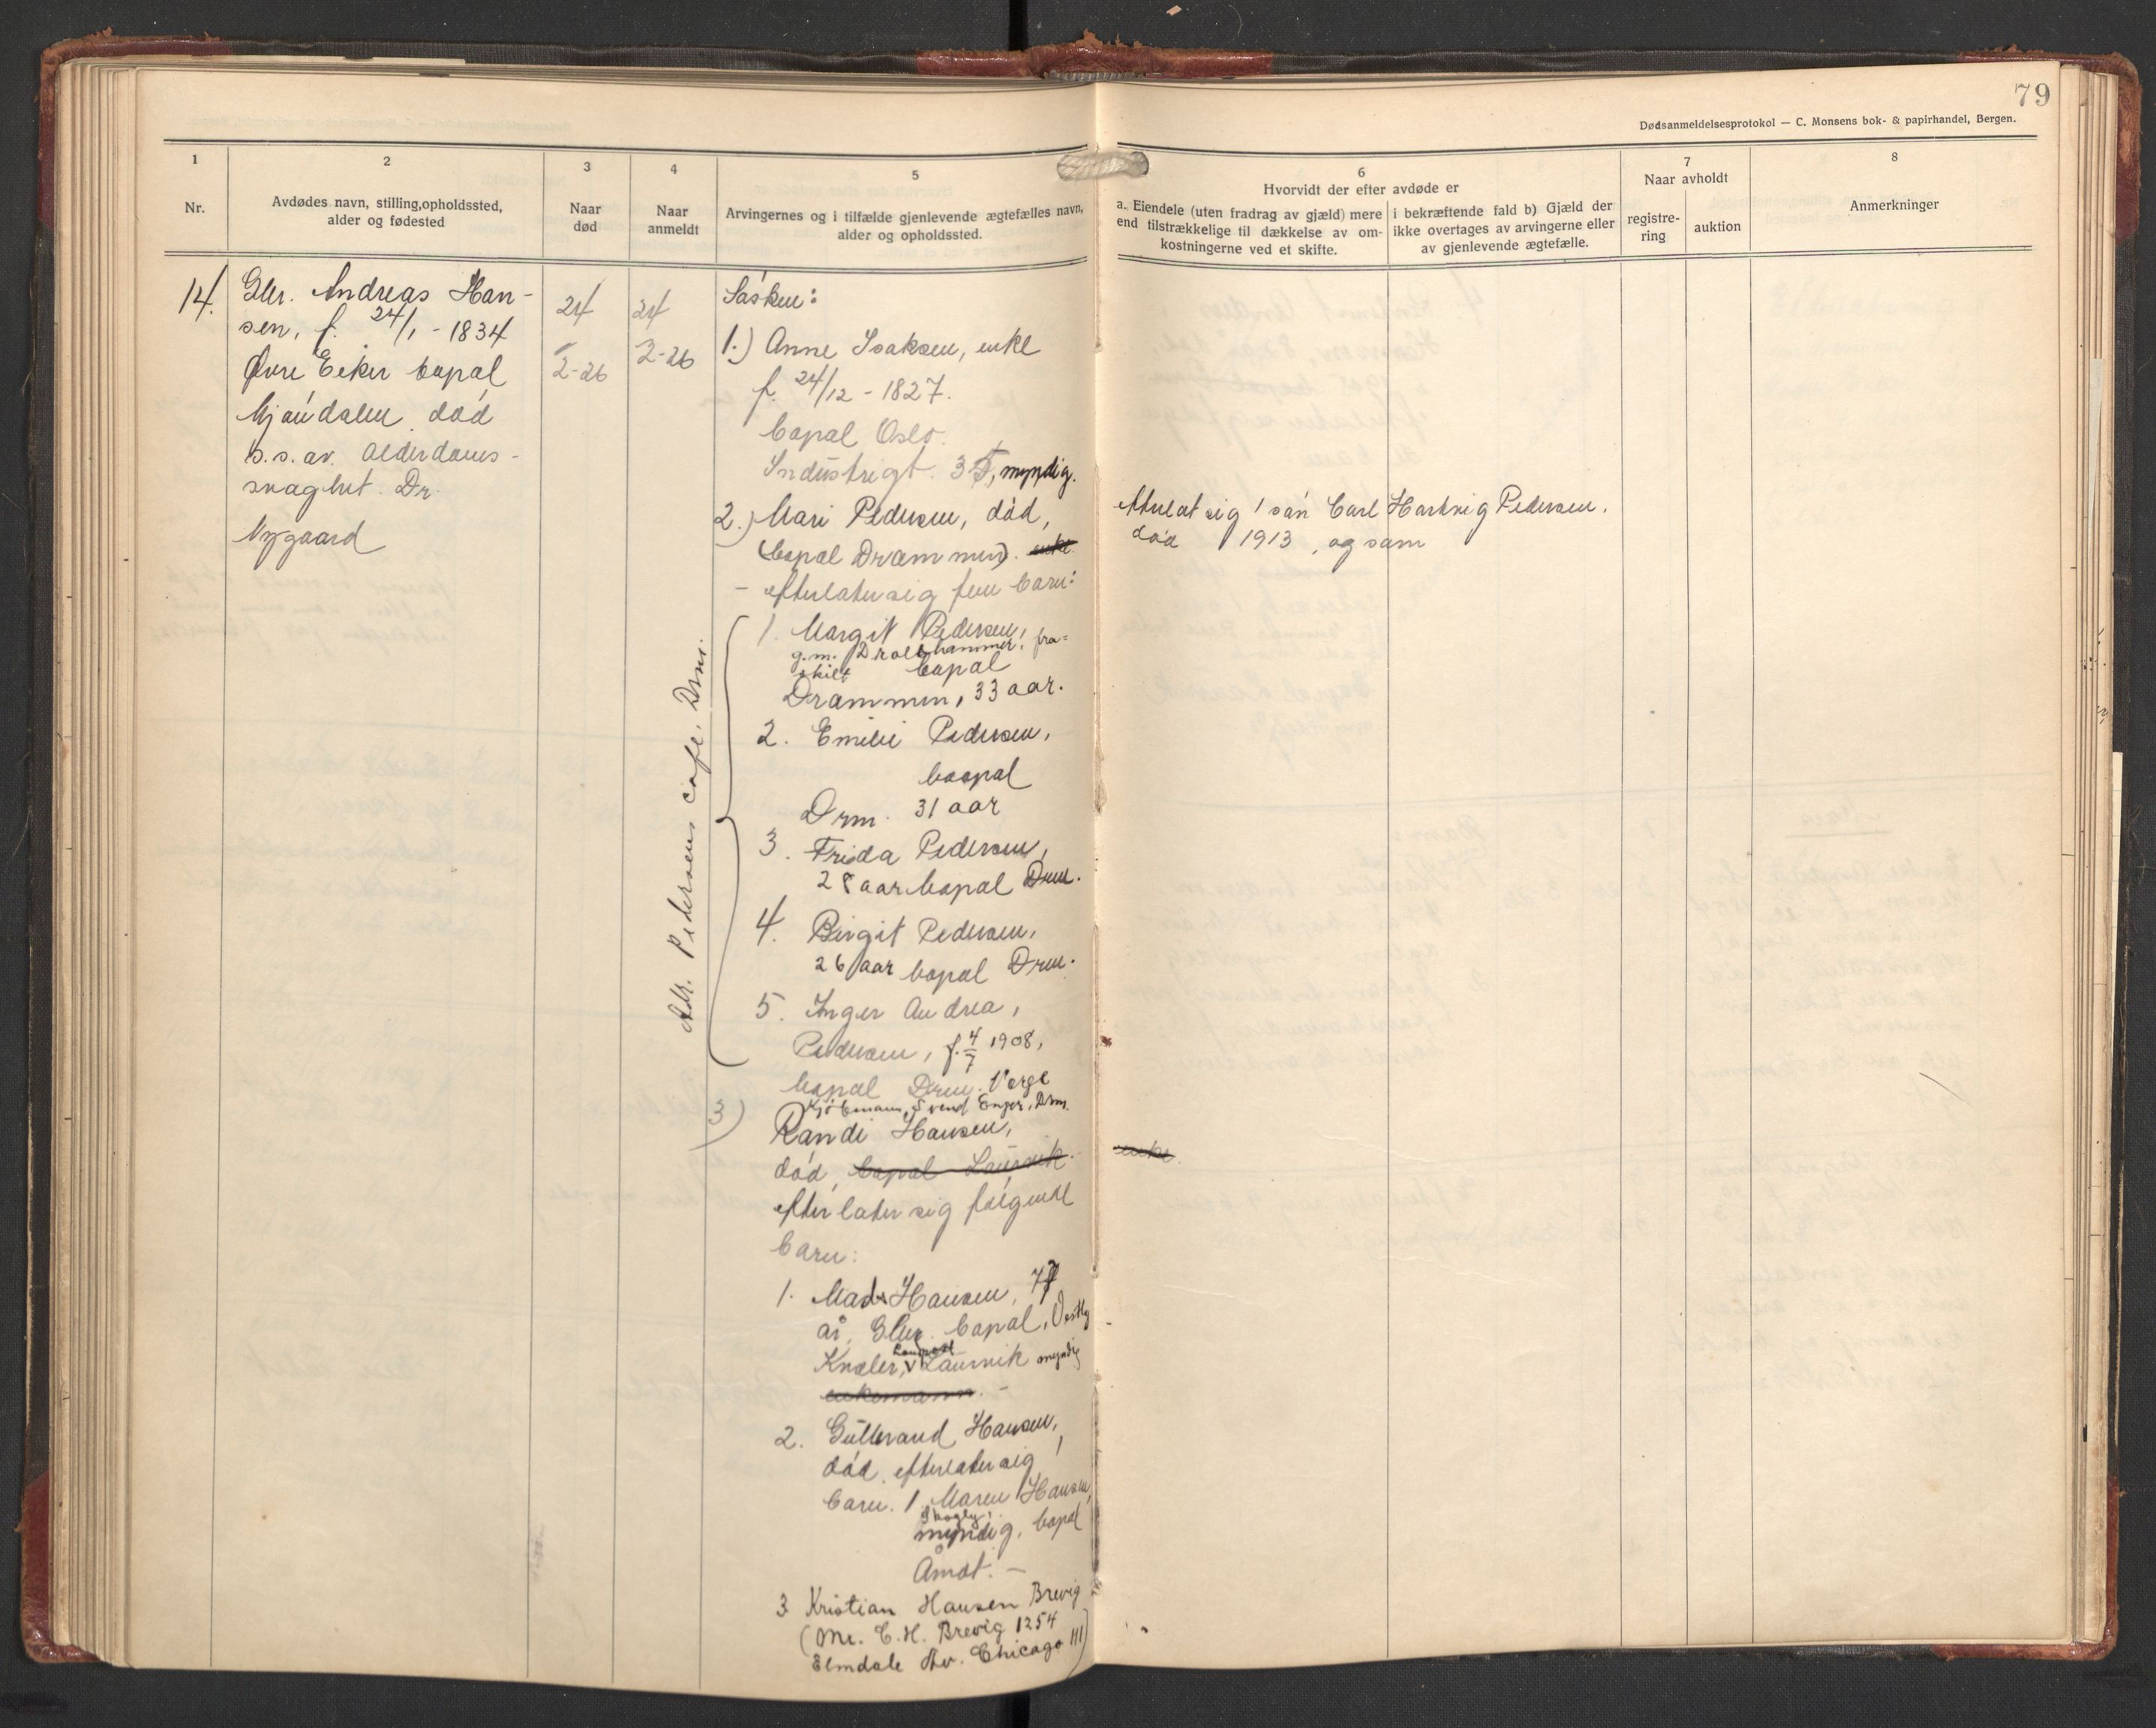 79
Dødsanmeldelsesprotokol — C. Monsens bok- & papirhandel, Bergen.
1
Nr.
2
Avdødes navn, stilling,opholdssted,
alder og fødested
3
Naar
død
4
Naar
anmeldt
5
Arvingernes og i tilfælde gjenlevende ægtefælles navn,
alder og opholdssted.
6
Hvorvidt der efter avdøde er
a. Eiendele (uten fradrag av gjæld) mere
end tilstrækkelige til dækkelse av om-
kostningerne ved et skifte.
i bekræftende fald b) Gjæld der
ikke overtages av arvingerne eller
av gjenlevende ægtefælle.
7
Naar avholdt
registre-
ring
auktion
8
Anmerkninger
14.
Gbr. Andreas Han-
sen, f. 24/1 - 1834
Øvre Eeker bopæl
Mjøndalen død
s.s. av. Alderdoms-
svaghet. Dr.
Nygaard
24
2-26
24
2-26
Søsken:
1.) Anne Isaksen, enke
f. 24/12 - 1827.
bopæl Oslo.
Industrigt. 3 , myndig.
2.) Mari Pedersen, død,
(bopæl Drammen). enke
- efterlater sig fem barn:
1. Margit Pedersen,
g.m. hammer, fra-
skilt bopæl
Drammen, 33 aar.
2. Emilie Pedersen,
boopæl
Drm. 31 aar
3. Frida Pedersen,
28 aar bopæl Drm.
4. Birgit Pedersen,
26 aar bopæl Drm.
5. Inger Andrea,
Pedersen, f. 4/7 1908,
bopæl Drm. Verge
Kjøbmann, Svend Enger, Drm.
Adr. Pedersens café, Drm.
3) Randi Hansen,
død, bopæl Laurvik. enke.
efterlater sig følgende
barn:
1. Mads Hansen, 77
år, Gbr. bopæl, Vestby
Kvelle, v Laurvik myndig
enkemann. -
2. Gulbrand Hansen,
død. efterlater sig 1
barn. 1 Maren Hansen,
Skogly,
myndig, bopæl
Åmot. -
3 Kristian Hansen Brevig
(Mr. C.H. Brevig 1254
Elmdale Av. Chicago Ill)
efterlot sig 1 søn Carl Hartvig Pedersen.
død 1913, og som